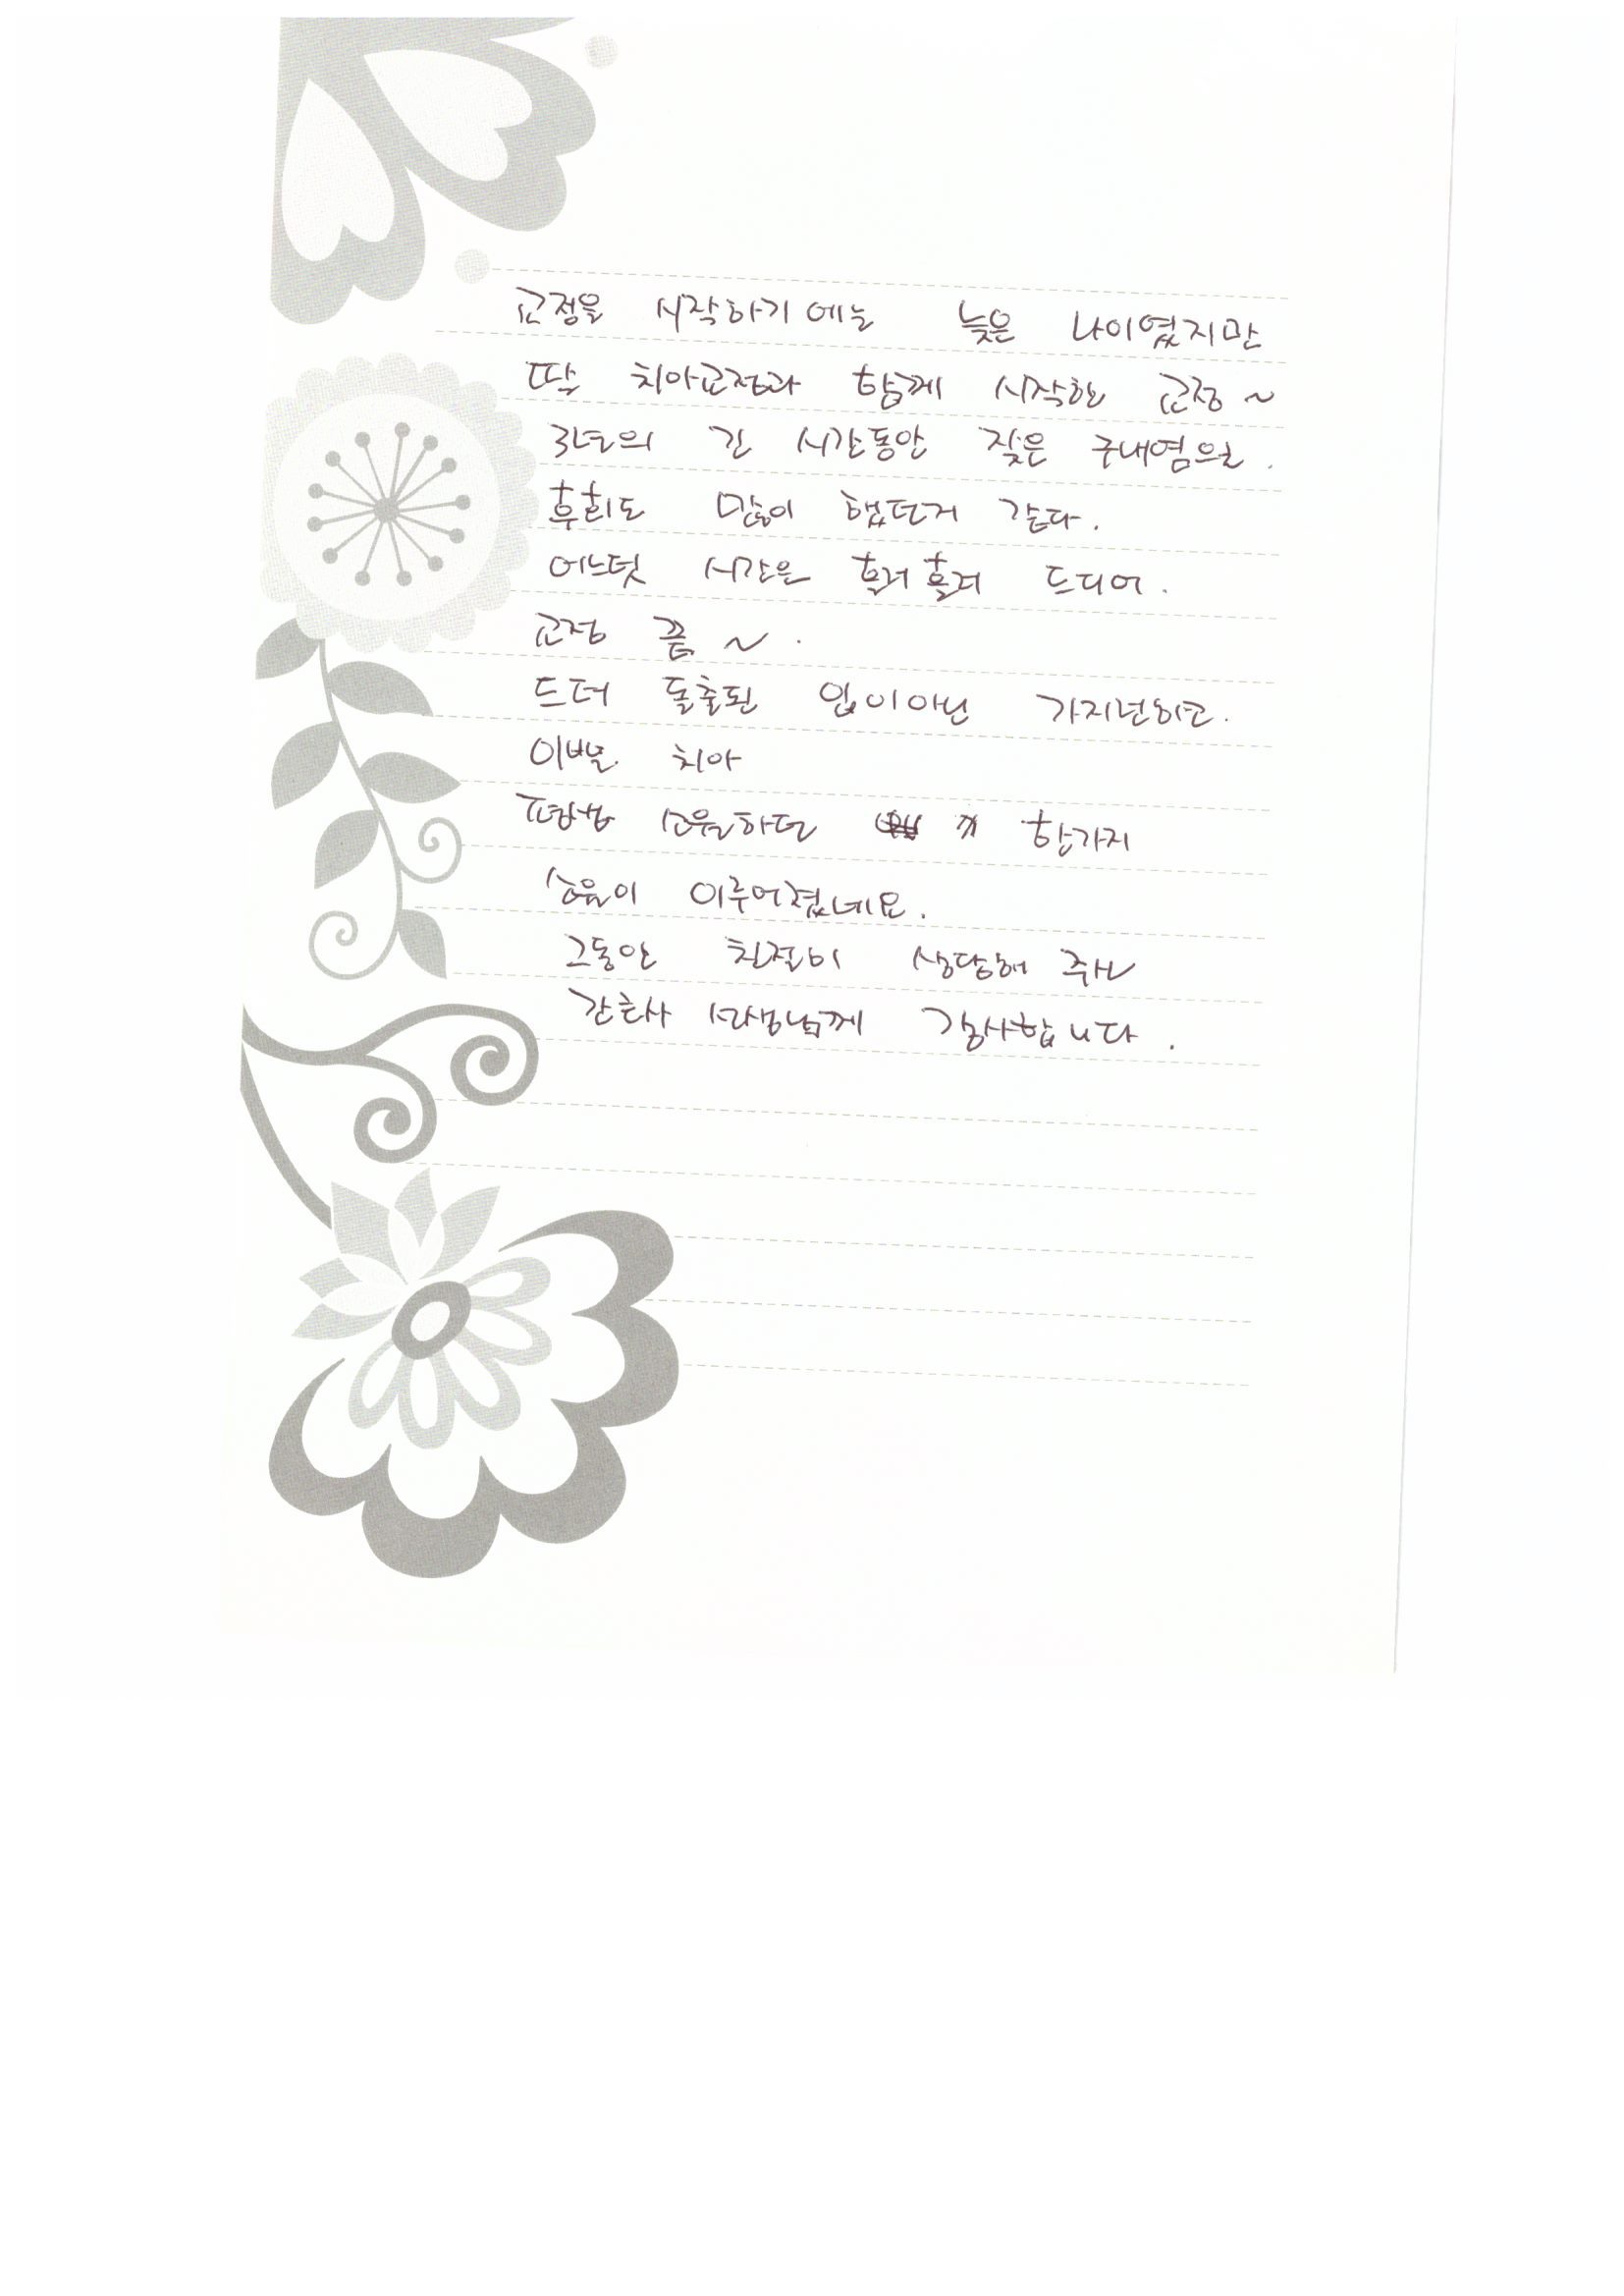 교정을 시작하기에는 늦은 나이였지만
딱 치아교정과 함께 시작한 교정~
3년의 긴 시간동안 잦은 구내염으로.
후회도 많이 했던거 같다.
어느덧 시간은 흘러흘러 드디어.
교정 끝~.
드뎌 돌출된 입이아닌 가지런하고.
이쁜 치아
평생 소원하던 한가지
소원이 이루어졌네요.
그동안 친절히 상담해 주신
간호사 선생님께 감사합니다.